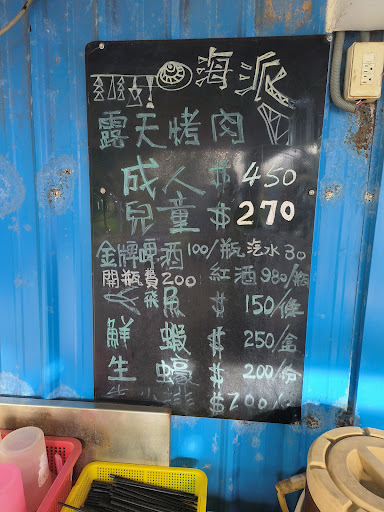 海派
露天烤肉
成人 $450
兒童 $270
金牌啤酒 100/瓶 汽水 30
開瓶費200 紅酒 980/瓶
飛魚 $150/條
鮮蝦 $250/盒
生蠔 $200/份
$700/